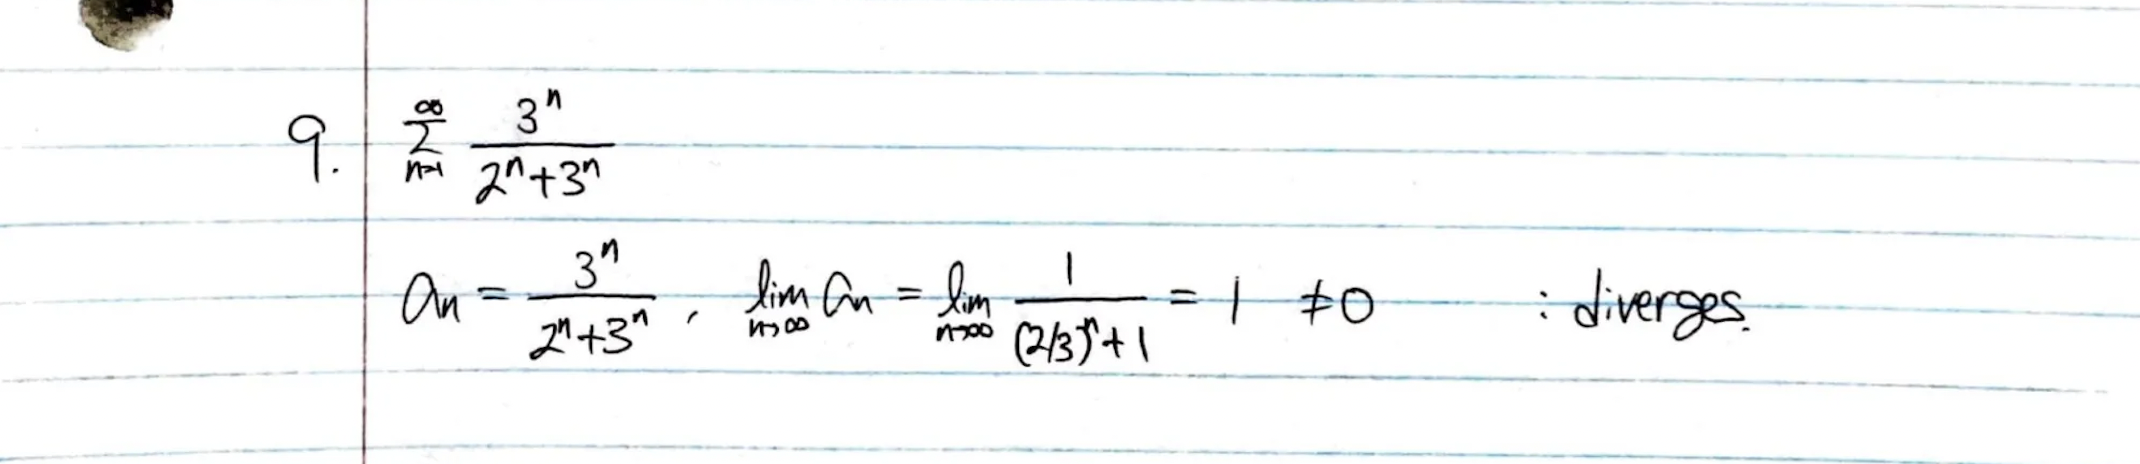 9. ∞ Σ n=1 3^n / 2^n+3^n
an = 3^n / 2^n+3^n , lim n→∞ an = lim n→∞ 1 / (2/3)^n+1 = 1 ≠0 : diverges.